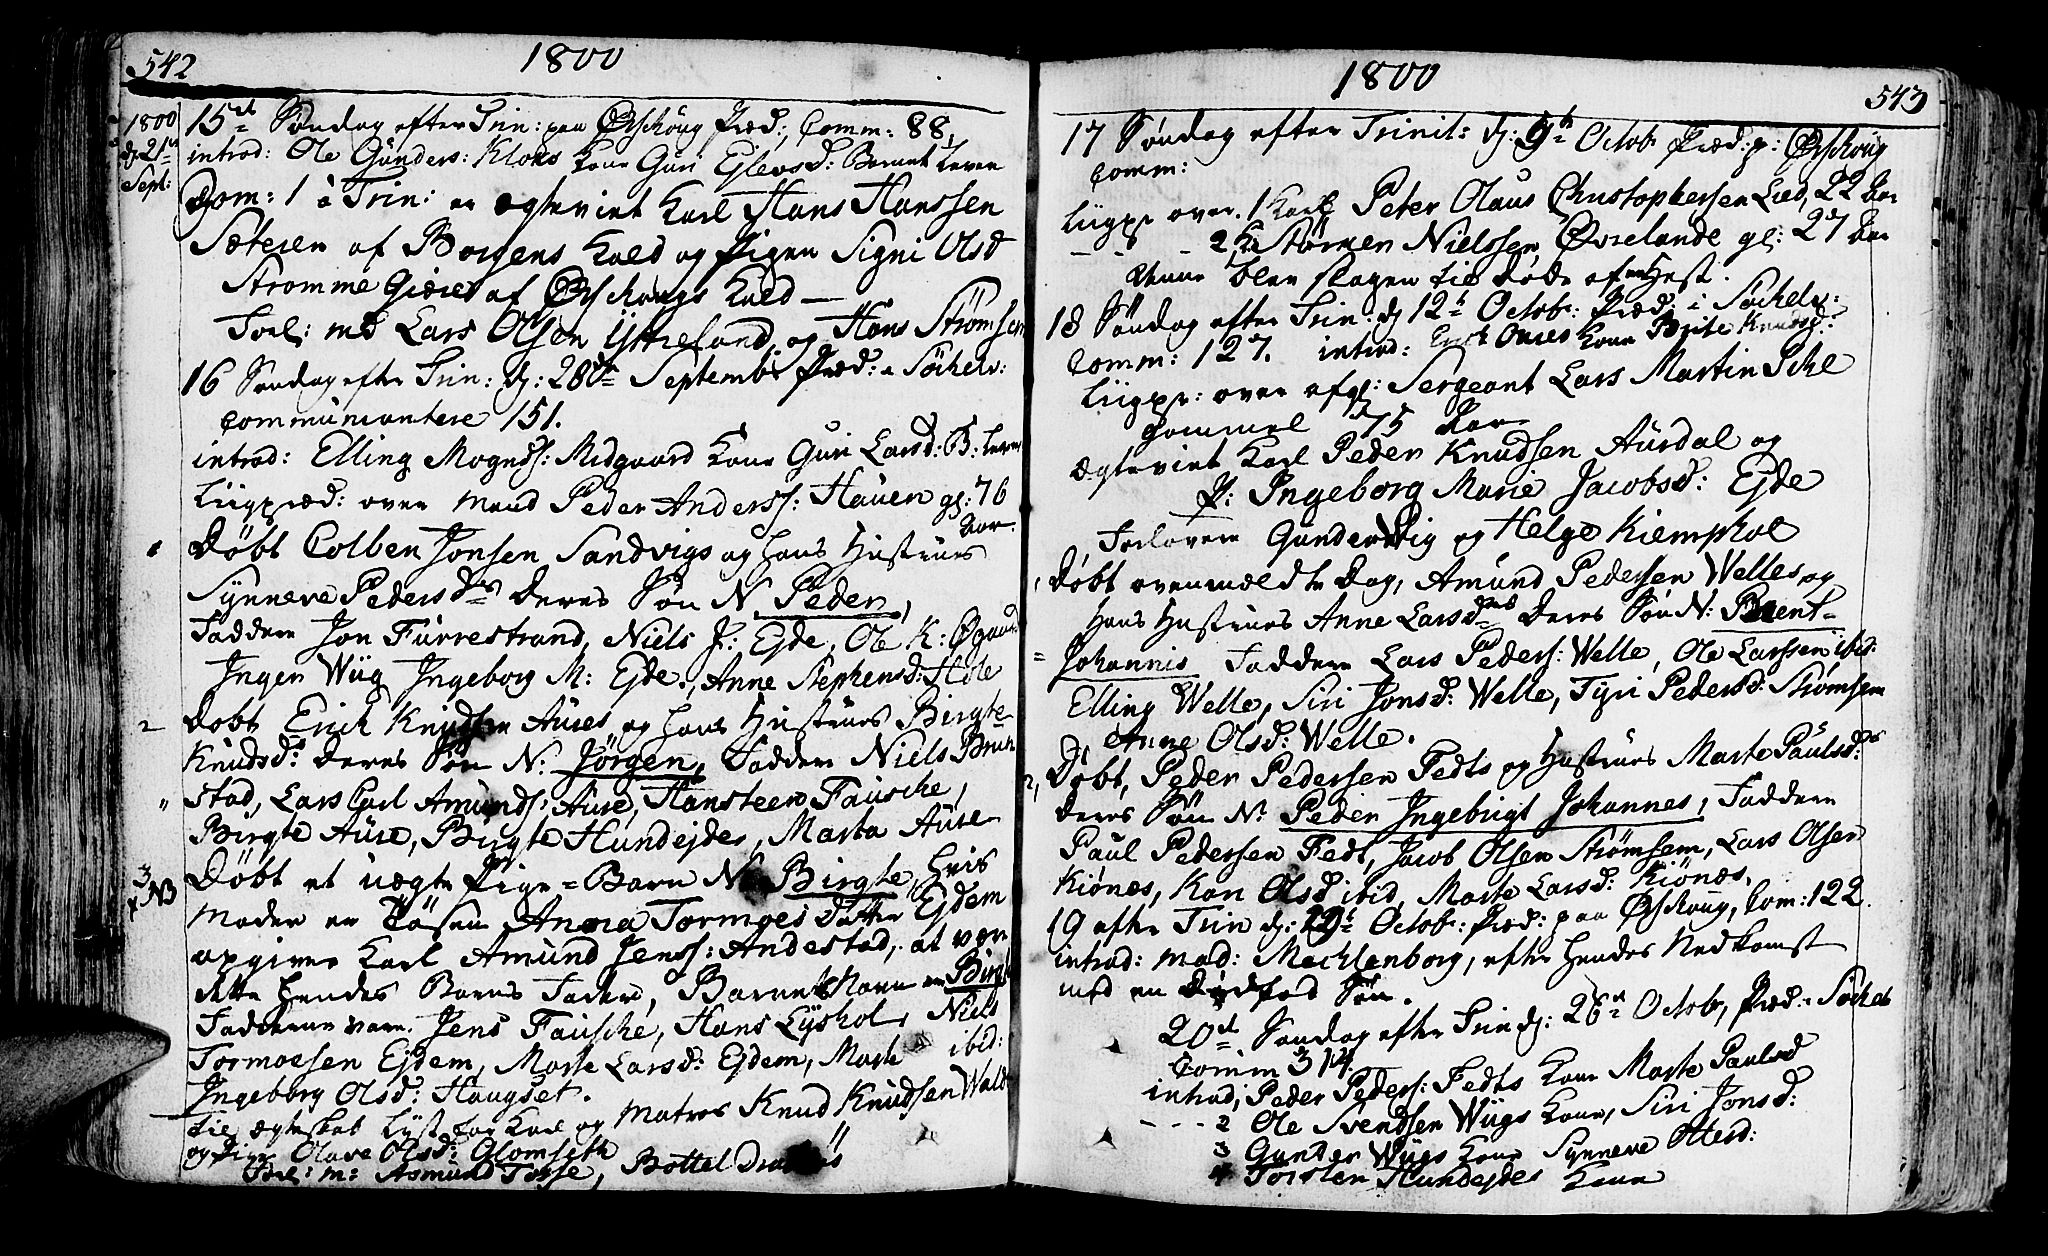 542
1800
1800
d: 21de
Sept:
15de Søndag efter Trin: paa Ørschoug Præd:, Comm: 88,
introd: Ole Gunders: Kloks Kone Guri Ejlevsd: Barnet Lever
Dom: 1 à Trin: er ægteviet Karl Hans Hanssen
Sæteren af Borgens Kald og Pigen Signi Olsd
Stromme Giære af Ørschougs Kald —
Forl: md Lars Olsen Yttreland, og Hans Strømsem
16 Søndag efter Trin: d: 28de Septemb: Præd: i Søchelv:
Communicantere 151.
introd: Elling Mognds: Midgaard Kone Guri Larsd: B: Lever
Liigpræd: over Mand Peder Anderss: Hauen gl: 76
Aar.
1 Døbt Colben Jonsen Sandvigs og hans Hustrues
Synneve Pedersdr Deres Søn N Peder,
Faddere Jon Furrestrand, Niels J: Ejde, Ole K: Øgaard
Inger Wiig Ingeborg M: Ejde, Anne Stephensd: Hole
2 Døbt Erich Knudsen Aures og hans Hustrues Birgte
Knudsd: Deres Søn N: Jörgen, Faddere Niels Brun
stad, Lars Carl Amunds: Aure, Hansteen Fausche,
Birgte Aure, Birgte Hundejdes, Marta Aure
3 NB Døbt et uægte Pige=Barn N Birgte, hvis
Moder er Tøsen Anna Tormoes datter Ejdem
opgiver Karl Amund Jenss: Andestad, at være
dette hendes Barns Fader, Barnets Navn er Birgt
Fadderne vare. Jens Fausche, Hans Lÿshol, Niels
Tormoesen Ejdem, Marte Larsd: Ejdem, Marte ibid:
Ingeborg Olsd: Haugset.
Til Ægteskab Lyst for Karl og Matros Knud Knudsen Wald
og Pige Olave Olsd: Glomseth
Forl: m: Asmund Tosse, Bottel
1800
543
17 Søndag efter Trinit: d: 5te Octob: Præd: p: Ørschoug
Comm:
Liigpr over. 1 Karl Peter Olaus Christophersen Lied, 22 Aar
- - - 2 K: Størker Nielssen Øvrelande gl: 27 Aar
denne blev slagen til døde af en Hest.
18 Søndag efter Trin: d 12te Octob: Præd: i Søchelv:
Comm: 127. introd: Erich Aures Kone Brite Knudsd:
Liigpr: over afgl: Sergeant Lars Martin Sehl
gammel 75 Aar
Ægteviet Karl Peder Knudsen Aurdal og
P: Ingeborg Marie Jacobsd: Ejde
Forlovere Gunder Wiig og Helge Kiemphol
1, Døbt ovenmeldte Dag, Amund Pedersen Welles og
Hans Hustrues Anne Larsdrs Deres Søn N: Bernt-
= Johannis Faddere Lars Peders: Welle, Ole Larssen ibid:
Elling Welle, Siri Jonsd: Welle, Tyri Pedersd: Strømsem
Anne Olsd: Welle.
2, Døbt, Peder Pedersen Fedts og Hustrues Marte Paulsd:
deres Søn N: Peder Ingebrigt Johannes, Faddere
Paul Pedersen Fedt, Jacob Olsen Strømsem, Lars Olsen
Kiönes, Kari Olsd ibid, Marte Larsd: Kiönes.
19 efter Trin d: 19te Octob: Præd: paa Ørschoug, Com: 122.
introd: Mad: Mechlenborg, efter hendes Nedkomst
med en dødfød Søn.
20de Søndag efter Trin d: 26de Octob, Præd: i Søchel
Comm 314.
introd, Peder Peders: Fedts Kone Marte Paulsd
- - - 2 Ole Svendsen Wiigs Kone, Siri Jonsd:
3 Gunder Wiigs Kone Synneve Ottersd:
4 Torsten Hundejdes Kone